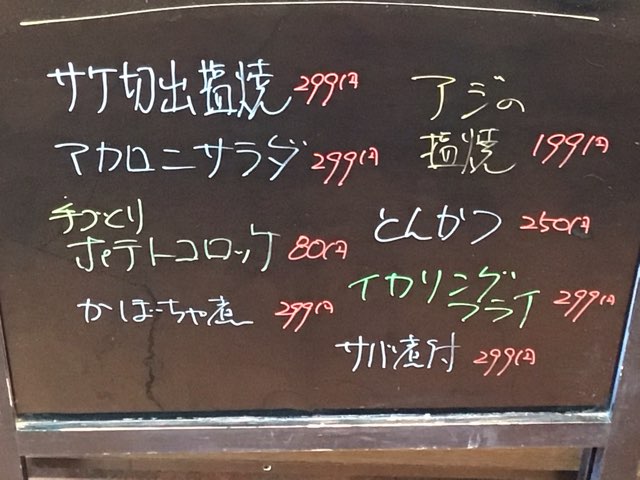 サケ切出塩焼 299円
マカロニサラダ 299円
手づくり
ポテトコロッケ 80円
かぼちゃ煮 299円
アジの
塩焼 199円
とんかつ 250円
イカリング
フライ 299円
サバ煮付 299円